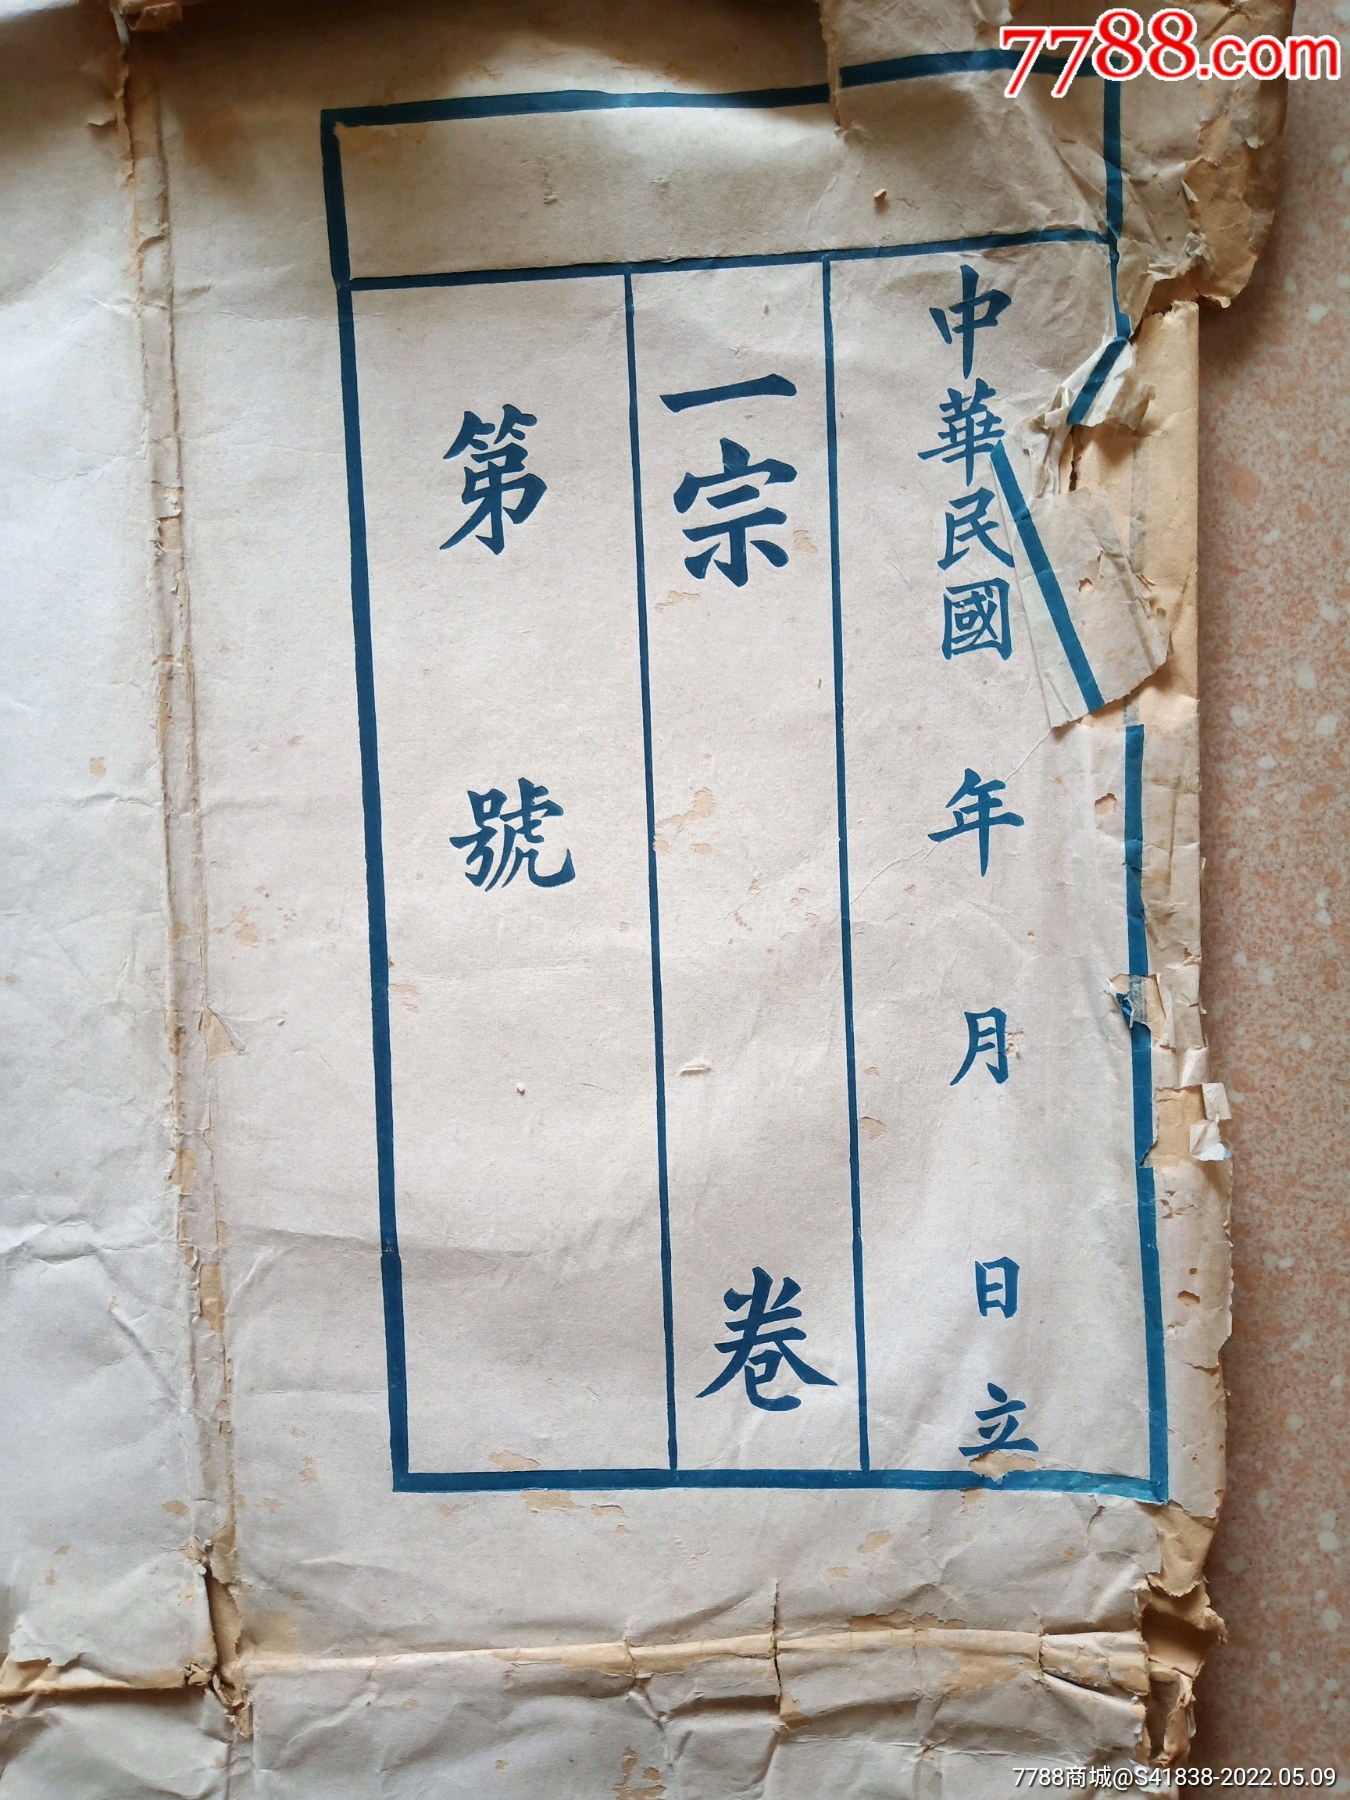 7788.com
中華民國 年 月 日 立
一宗 卷
第 號
7788商城@S41838-2022.05.09